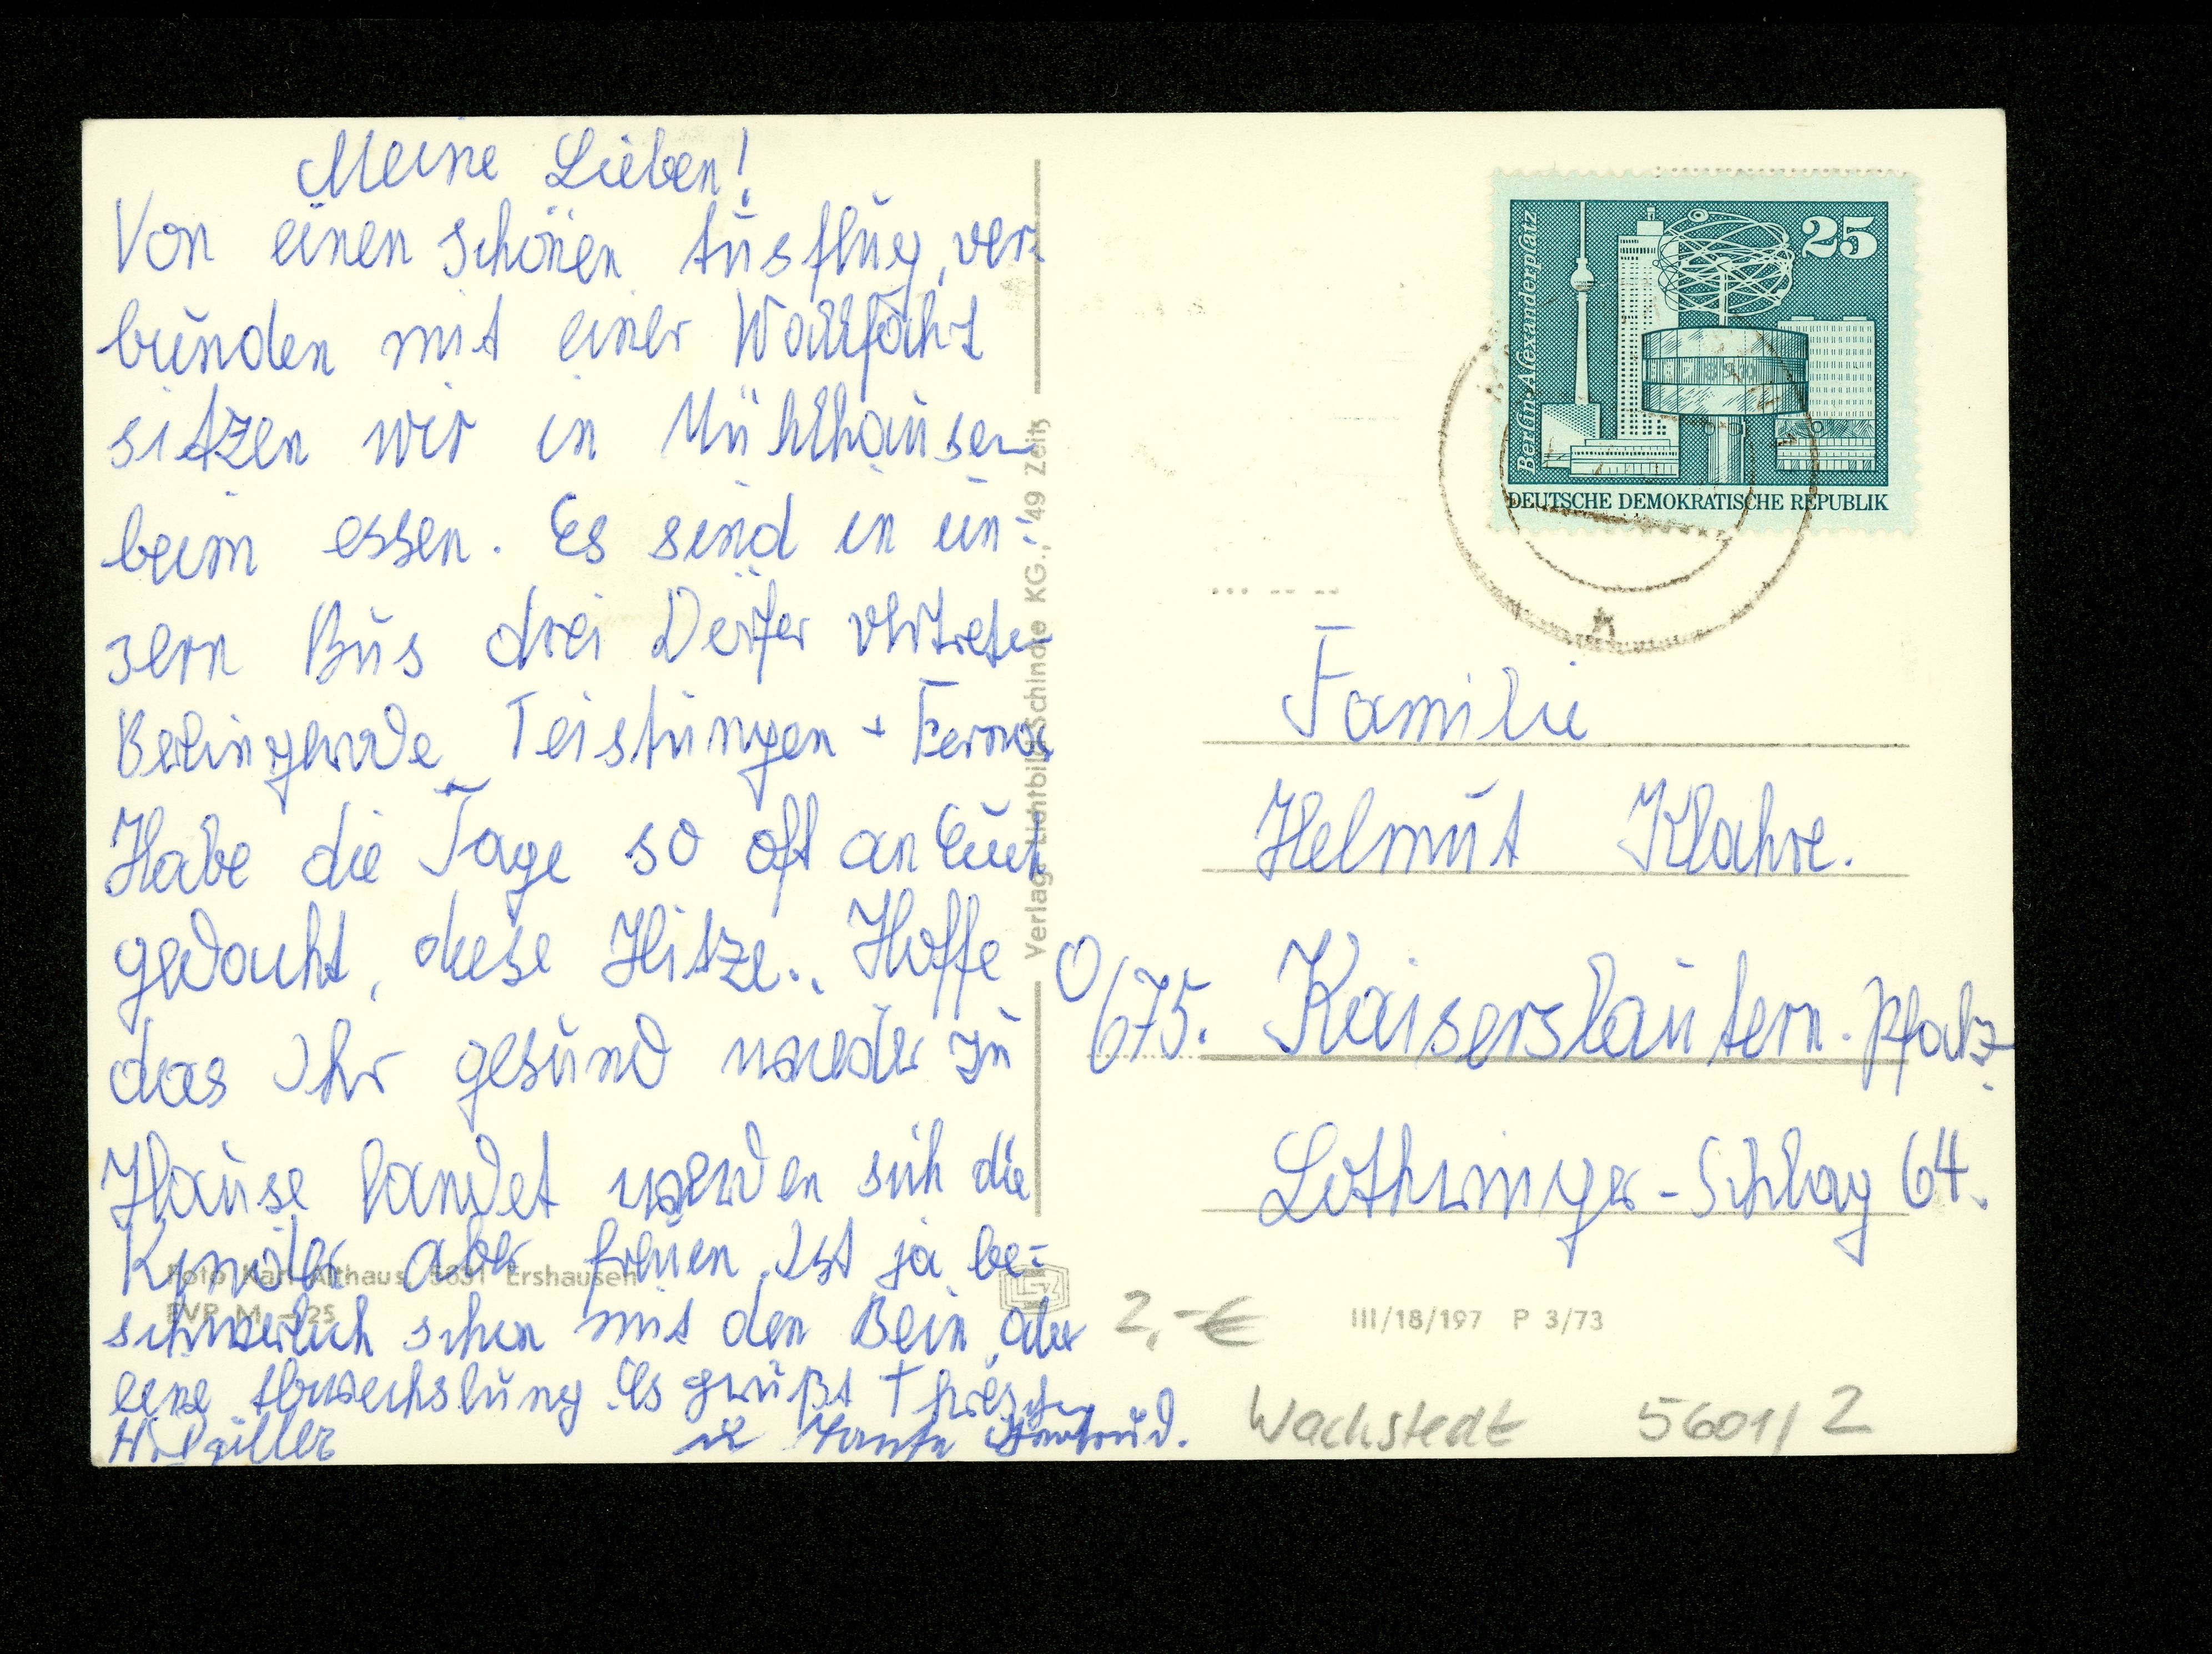 Meine Lieben!
Von einen schönen Ausflug, ver-
bunden mit einer Wallfahrt
sitzen wir in Mühlhausen
beim essen. Es sind in un-
sern Bus drei Dörfer vertreten
Berlingerode, Teistungen + Ferna
Habe die Tage so oft an Euch
gedacht, diese Hitze. Hoffe
das Ihr gesund wieder zu
Hause landet werden sich die
Kinder aber freuen. Ist ja be-
schwerlich schon mit den Bein, aber
eine Abwechslung. Es grüßt
Tante
Verlag: Lichtbild Schincke KG., 49 Zeitz
Foto Karl Althaus, 5631 Ershausen
EVP M –,25
25
Berlin, Alexanderplatz
DEUTSCHE DEMOKRATISCHE REPUBLIK
Familie
Helmut Klahre.
675. Kaiserslautern. Pfalz.
Lothringer-Schlag 64.
2,-€
III/18/197 P 3/73
Wachstedt 5601/2